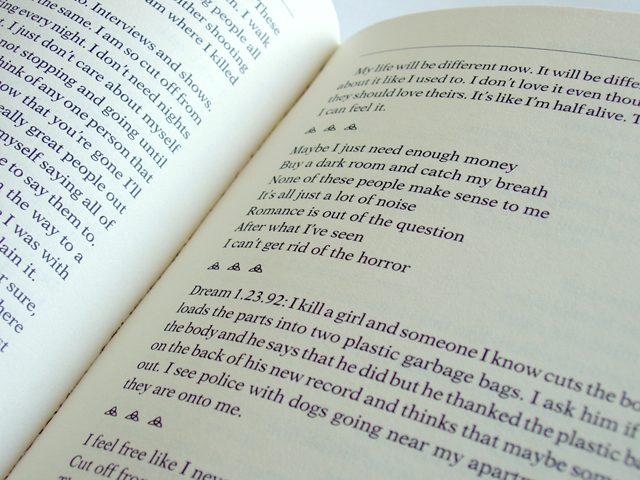 These
n, I walk
g people all
ither shooting
am where I killed
the same.
to. Interviews and shows.
ing every night. I am so cut off from
t. I just don't need nights
don't care about myself
not stopping and going until
think of any one person that
ow that you're gone I'll
eally great people out
myself saying all of
e to say them to.
the way to a
I was with
lain it.
r sure,
here
st
My life will be different now. It will be diffe
about it like I used to. I don't love it even thou
they should love theirs. It's like I'm half alive. T
I can feel it.
Maybe I just need enough money
Buy a dark room and catch my breath
None of these people make sense to me
It's all just a lot of noise
Romance is out of the question
After what I've seen
I can't get rid of the horror
Dream 1.23.92: I kill a girl and someone I know cuts the bo
loads the parts into two plastic garbage bags. I ask him if
the body and he says that he did but he thanked the plastic ba
on the back of his new record and thinks that maybe som
out. I see police with dogs going near my apartm
they are onto me.
I feel free like I neve
Cut off from